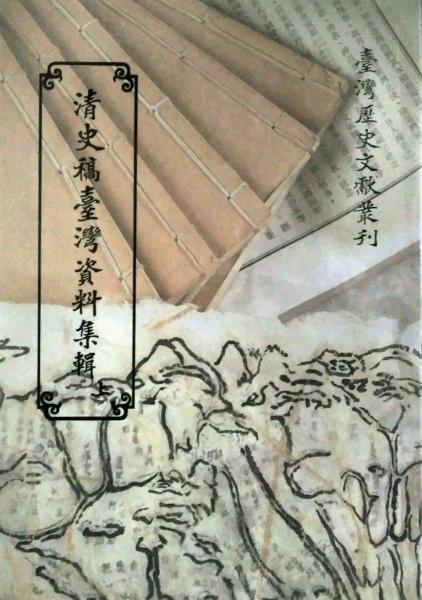 臺灣歷史文獻叢刊
清史稿臺灣資料集輯
上